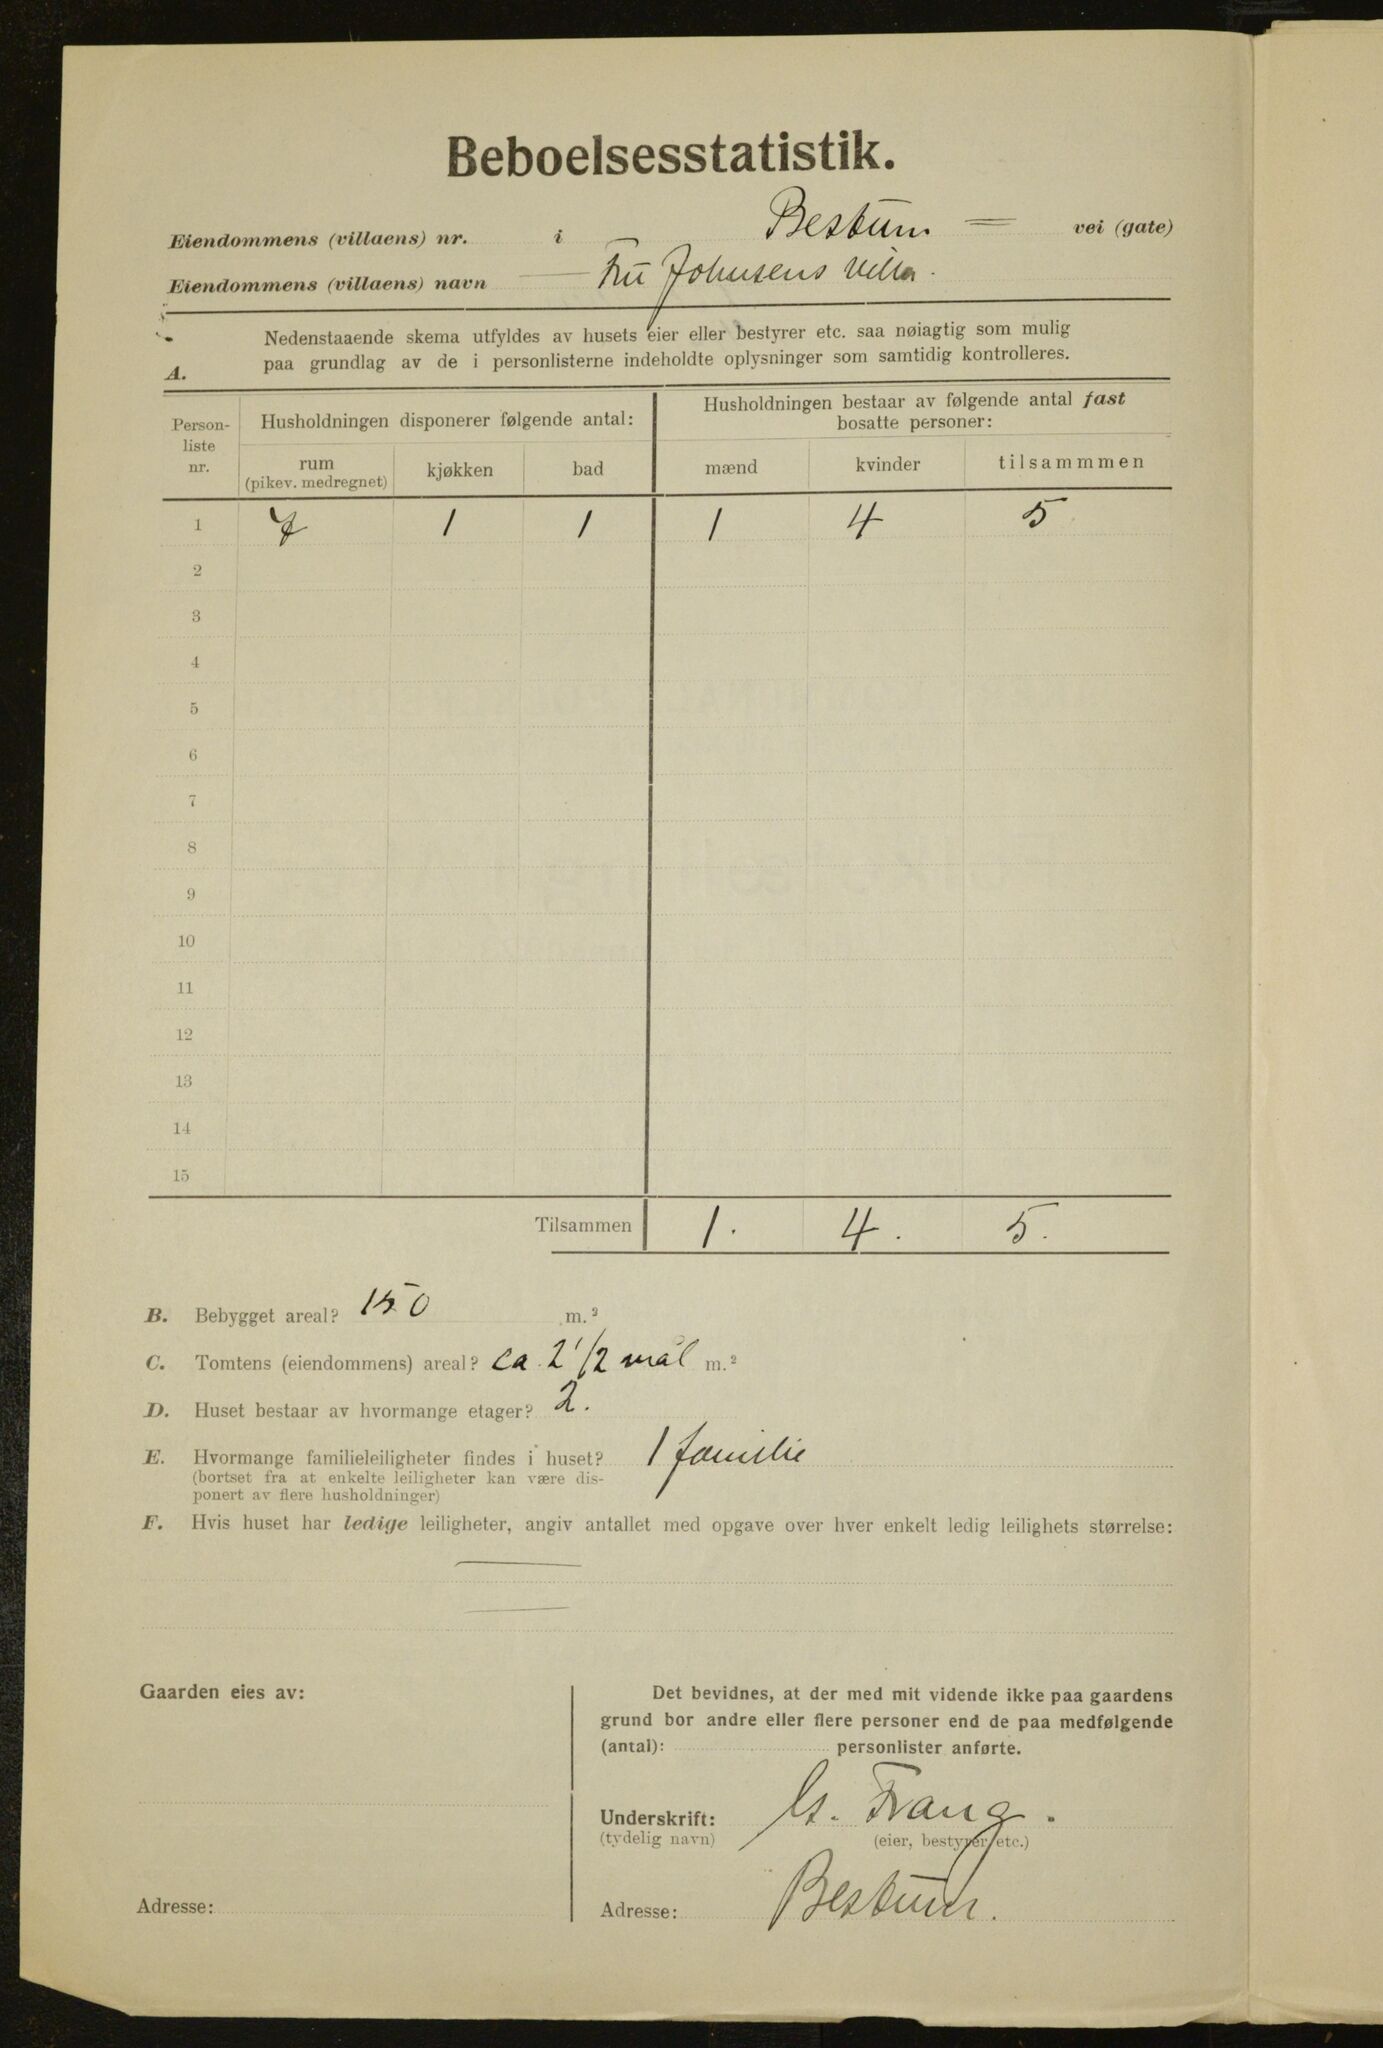 Beboelsesstatistik.
Eiendommens (villaens) nr. i Bestum = vei (gate)
Eiendommens (villaens) navn — Fru Johnsens Villa.
A. Nedenstaaende skema utfyldes av husets eier eller bestyrer etc. saa nøiagtig som mulig
paa grundlag av de i personlisterne indeholdte oplysninger som samtidig kontrolleres.
Person-
liste
nr.
Husholdningen disponerer følgende antal:
Husholdningen bestaar av følgende antal fast
bosatte personer:
rum
(pikev. medregnet)
kjøkken
bad
mænd
kvinder
tilsammmen
1 7 1 1 1 4 5
2
3
4
5
6
7
8
9
10
11
12
13
14
15
Tilsammen 1. 4. 5.
B. Bebygget areal? 150 m.²
C. Tomtens (eiendommens) areal? ca. 2 1/2 mål m.²
D. Huset bestaar av hvormange etager? 2.
E. Hvormange familieleiligheter findes i huset? 1 familie
(bortset fra at enkelte leiligheter kan være dis-
ponert av flere husholdninger)
F. Hvis huset har ledige leiligheter, angiv antallet med opgave over hver enkelt ledig leilighets størrelse:
Gaarden eies av:
Adresse:
Det bevidnes, at der med mit vidende ikke paa gaardens
grund bor andre eller flere personer end de paa medfølgende
(antal): personlister anførte.
Underskrift: Frang.
(tydelig navn) (eier, bestyrer etc.)
Adresse: Bestum.